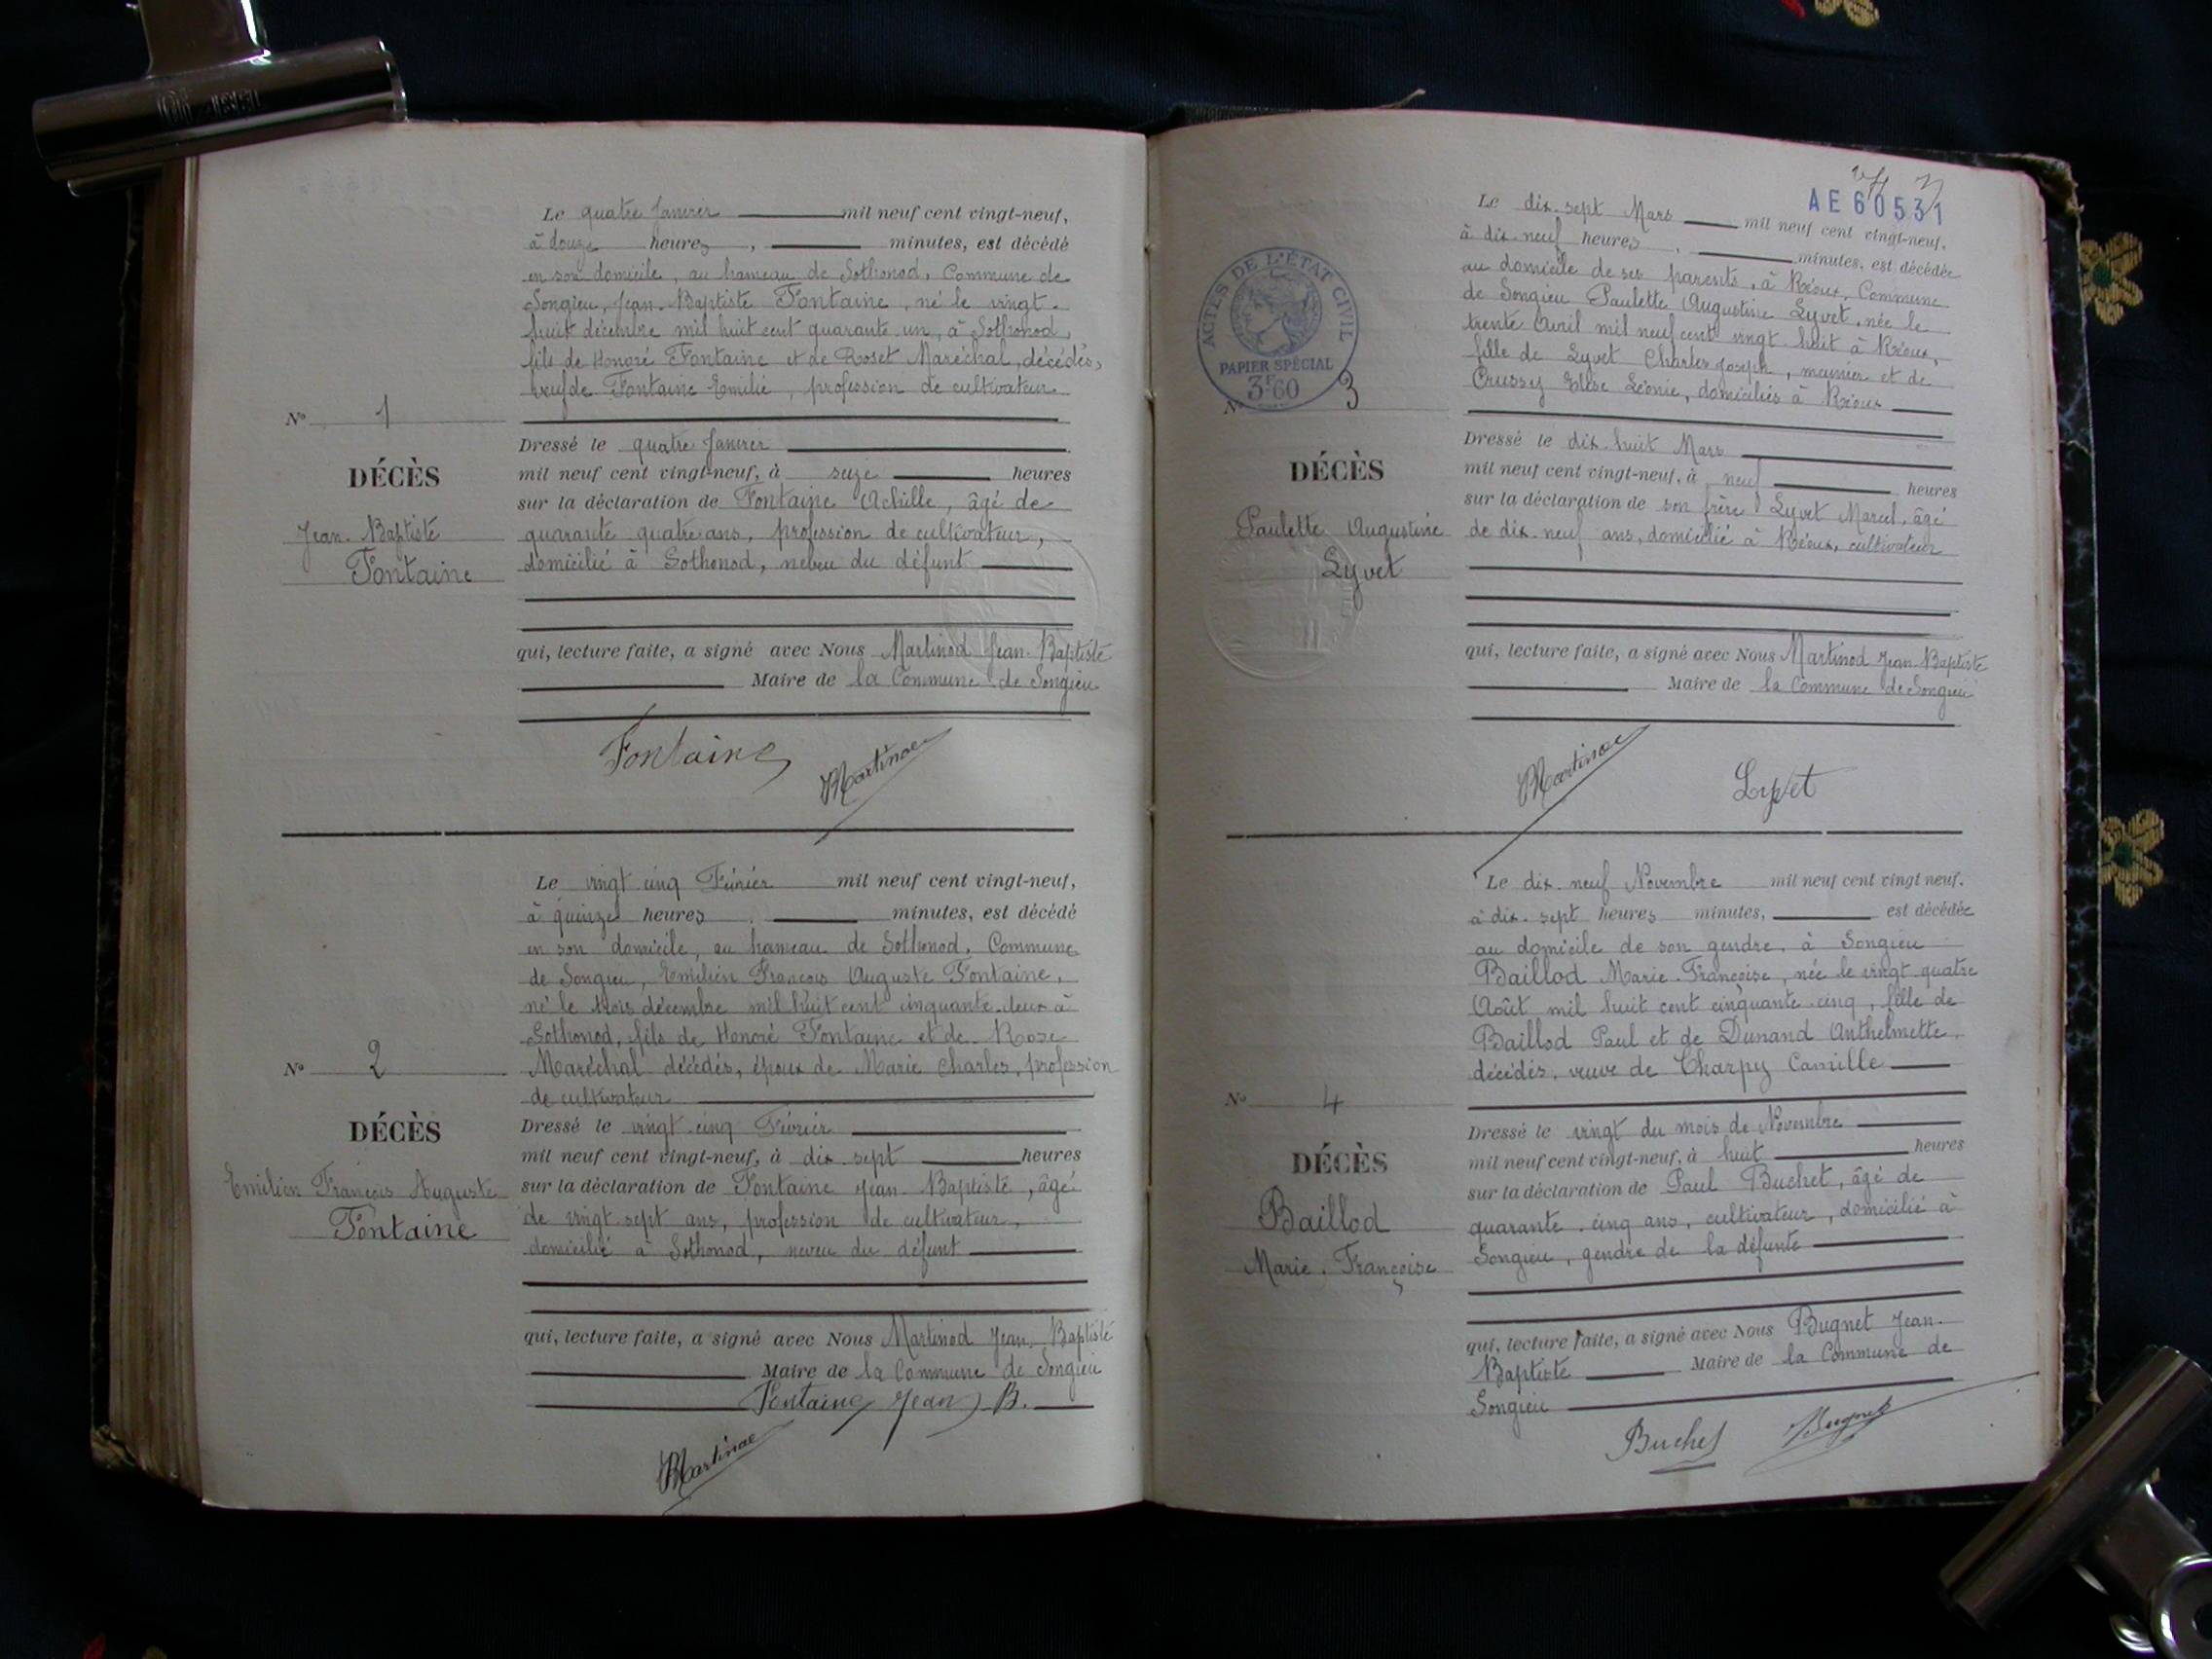 Le quatre Janvier mil neuf cent vingt-neuf,
à douze heures, minutes, est décédé
en son domicile, au hameau de Sothonod, Commune de
Songieu, Jean-Baptiste Fontaine, né le vingt-
huit décembre mil huit cent quarante un, à Sothonod,
fils de Honoré Fontaine et de Roset Maréchal, décédés,
veuf de Fontaine Emilie, profession de cultivateur
N° 1
Dressé le quatre Janvier
DÉCÈS
mil neuf cent vingt-neuf, à seize heures
sur la déclaration de Fontaine Achille, âgé de
Jean-Baptiste
quarante quatre ans, profession de cultivateur,
Fontaine
domicilié à Sothonod, neveu du défunt
qui, lecture faite, a signé avec Nous Martinod Jean-Baptiste
Maire de la Commune de Songieu
Fontaine Martinod
Le vingt cinq Février mil neuf cent vingt-neuf,
à quinze heures, minutes, est décédé
en son domicile, au hameau de Sothonod, Commune
de Songieu, Emilien François Auguste Fontaine,
né le trois décembre mil huit cent cinquante-deux à
Sothonod, fils de Honoré Fontaine et de Rose
N° 2
Maréchal décédés, époux de Marie Charles, profession
de cultivateur
DÉCÈS
Dressé le vingt-cinq Février
mil neuf cent vingt-neuf, à dix-sept heures
Emilien François Auguste
sur la déclaration de Fontaine Jean-Baptiste, âgé
Fontaine
de vingt-sept ans, profession de cultivateur,
domicilié à Sothonod, neveu du défunt
qui, lecture faite, a signé avec Nous Martinod Jean-Baptiste
Maire de la Commune de Songieu
Fontaine Jean B.
Martinod
AE 60531
Le dix-sept Mars mil neuf cent vingt-neuf,
à dix-neuf heures, minutes, est décédée
au domicile de ses parents, à Réoux, Commune
de Songieu Paulette Augustine Lyvet, née le
trente Avril mil neuf cent vingt-huit à Réoux,
fille de Lyvet Charles Joseph, meunier et de
Crussy Elise Léonie, domiciliés à Réoux
ACTES DE L'ÉTAT CIVIL
PAPIER SPÉCIAL
3F60
N° 3
Dressé le dix-huit Mars
DÉCÈS
mil neuf cent vingt-neuf, à neuf heures
sur la déclaration de son frère Lyvet Marcel, âgé
Paulette Augustine
de dix-neuf ans, domicilié à Réoux, cultivateur
Lyvet
qui, lecture faite, a signé avec Nous Martinod Jean-Baptiste
Maire de la Commune de Songieu
Martinod Lyvet
Le dix-neuf Novembre mil neuf cent vingt neuf.
à dix-sept heures minutes, est décédée
au domicile de son gendre, à Songieu
Baillod Marie-Françoise, née le vingt quatre
Août mil huit cent cinquante-cinq, fille de
Baillod Paul et de Dunand Anthelmette,
décédés, veuve de Charpy Camille
N° 4
Dressé le vingt du mois de Novembre
DÉCÈS
mil neuf cent vingt-neuf, à huit heures
sur la déclaration de Paul Buchet, âgé de
Baillod
quarante-cinq ans, cultivateur, domicilié à
Marie-Françoise
Songieu, gendre de la défunte
qui, lecture faite, a signé avec Nous Bugnet Jean-
Baptiste Maire de la Commune de
Songieu
Buchet Bugnet